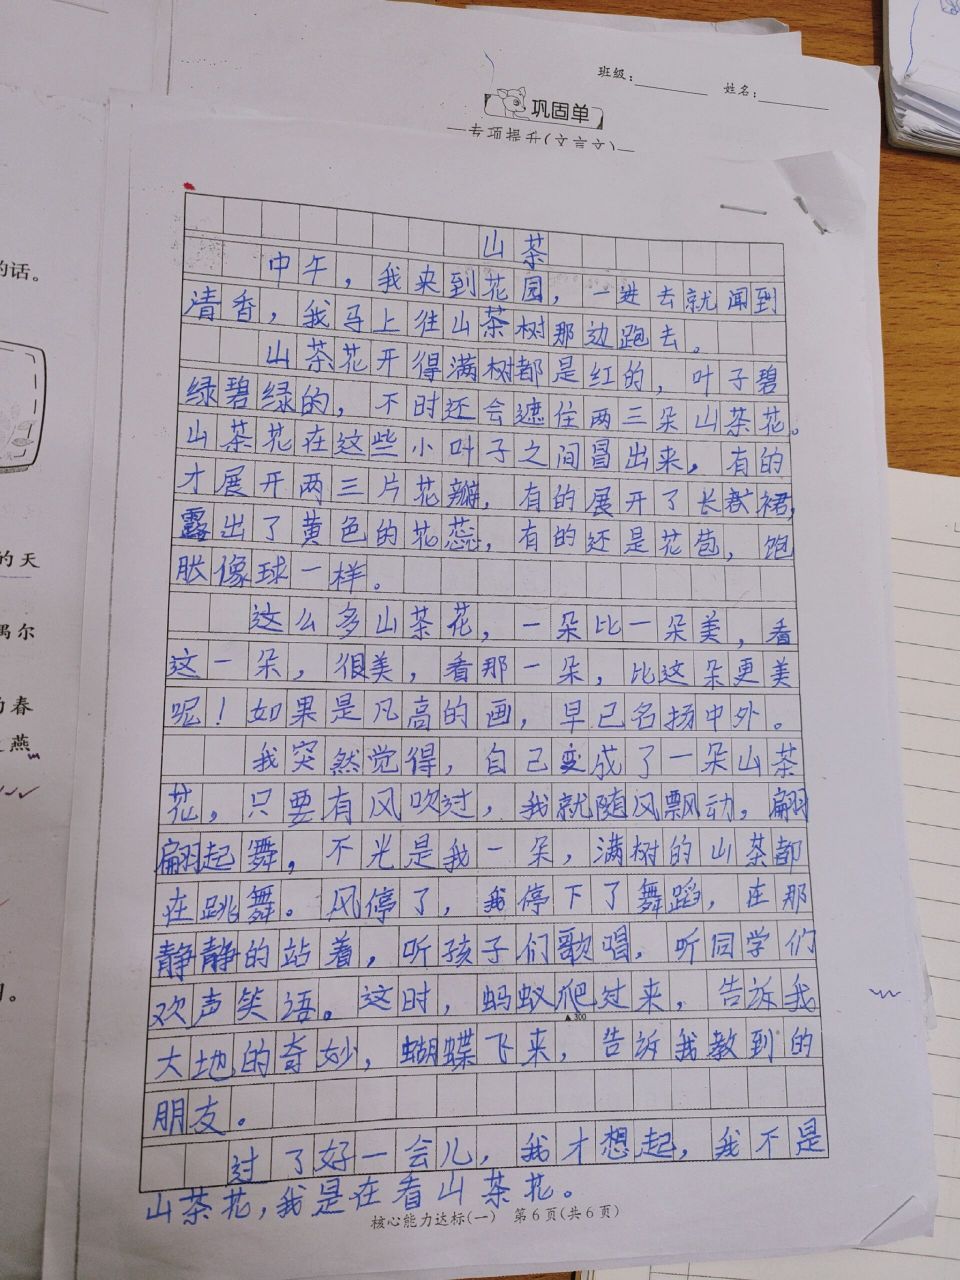 班级：
姓名：
巩固单
专项提升(文言文)
山茶
中午，我来到花园，一进去就闻到
清香，我马上往山茶树那边跑去。
山茶花开得满树都是红的，叶子碧
绿碧绿的，不时还会遮住两三朵山茶花。
山茶花在这些小叶子之间冒出来，有的
才展开两三片花瓣，有的展开了长裙，
露出了黄色的花蕊，有的还是花苞，饱
胀像球一样。
这么多山茶花，一朵比一朵美，看
这一朵，很美，看那一朵，比这朵更美
呢！如果是凡高的画，早已名扬中外。
我突然觉得，自己变成了一朵山茶
花，只要有风吹过，我就随风飘动，翩
翩起舞，不光是我一朵，满树的山茶都
在跳舞。风停了，我停下了舞蹈，在那
静静的站着，听孩子们歌唱，听同学们
欢声笑语。这时，蚂蚁爬过来，告诉我
▲300
大地的奇妙，蝴蝶飞来，告诉我教到的
朋友。
过了好一会儿，我才想起，我不是
山茶花，我是在看山茶花。
核心能力达标(一) 第6页(共6页)
的话。
的天
偶尔
春
燕